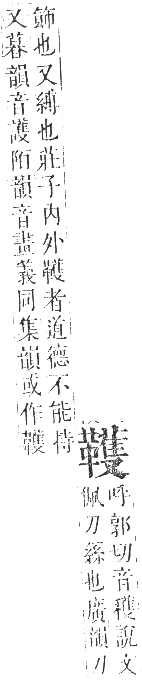 韄
呼郭切音穫說文
佩刀絲也廣韻刀
飾也又縛也莊子內外韄者道德不能持
又暮韻音護陌韻音畫義同集韻或作